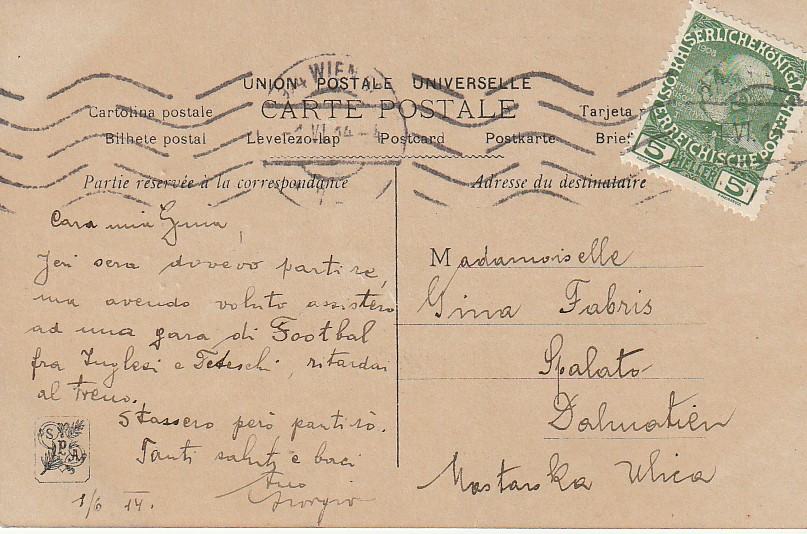 UNION POSTALE UNIVERSELLE
CARTE POSTALE
Cartolina postale
Tarjeta
Bilhete postal Levelezo-lap Postcard Postkarte
WIEN
1 VI 14
1908
5 HELLER 5
Partie réservée à la correspondance
Adresse du destinataire
Cara mia Gina,
Jeri sera dovevo partire,
ma avendo voluto assistere
ad una gara di Footbal
fra Inglesi e Tedeschi ritardai
al treno.
Stassera però partirò.
Tanti saluti e baci
tuo
Giorgio
1/6 14.
S P A
Madamoiselle
Gina Fabris
Spalato
Dalmatien
Mostarska Ulica